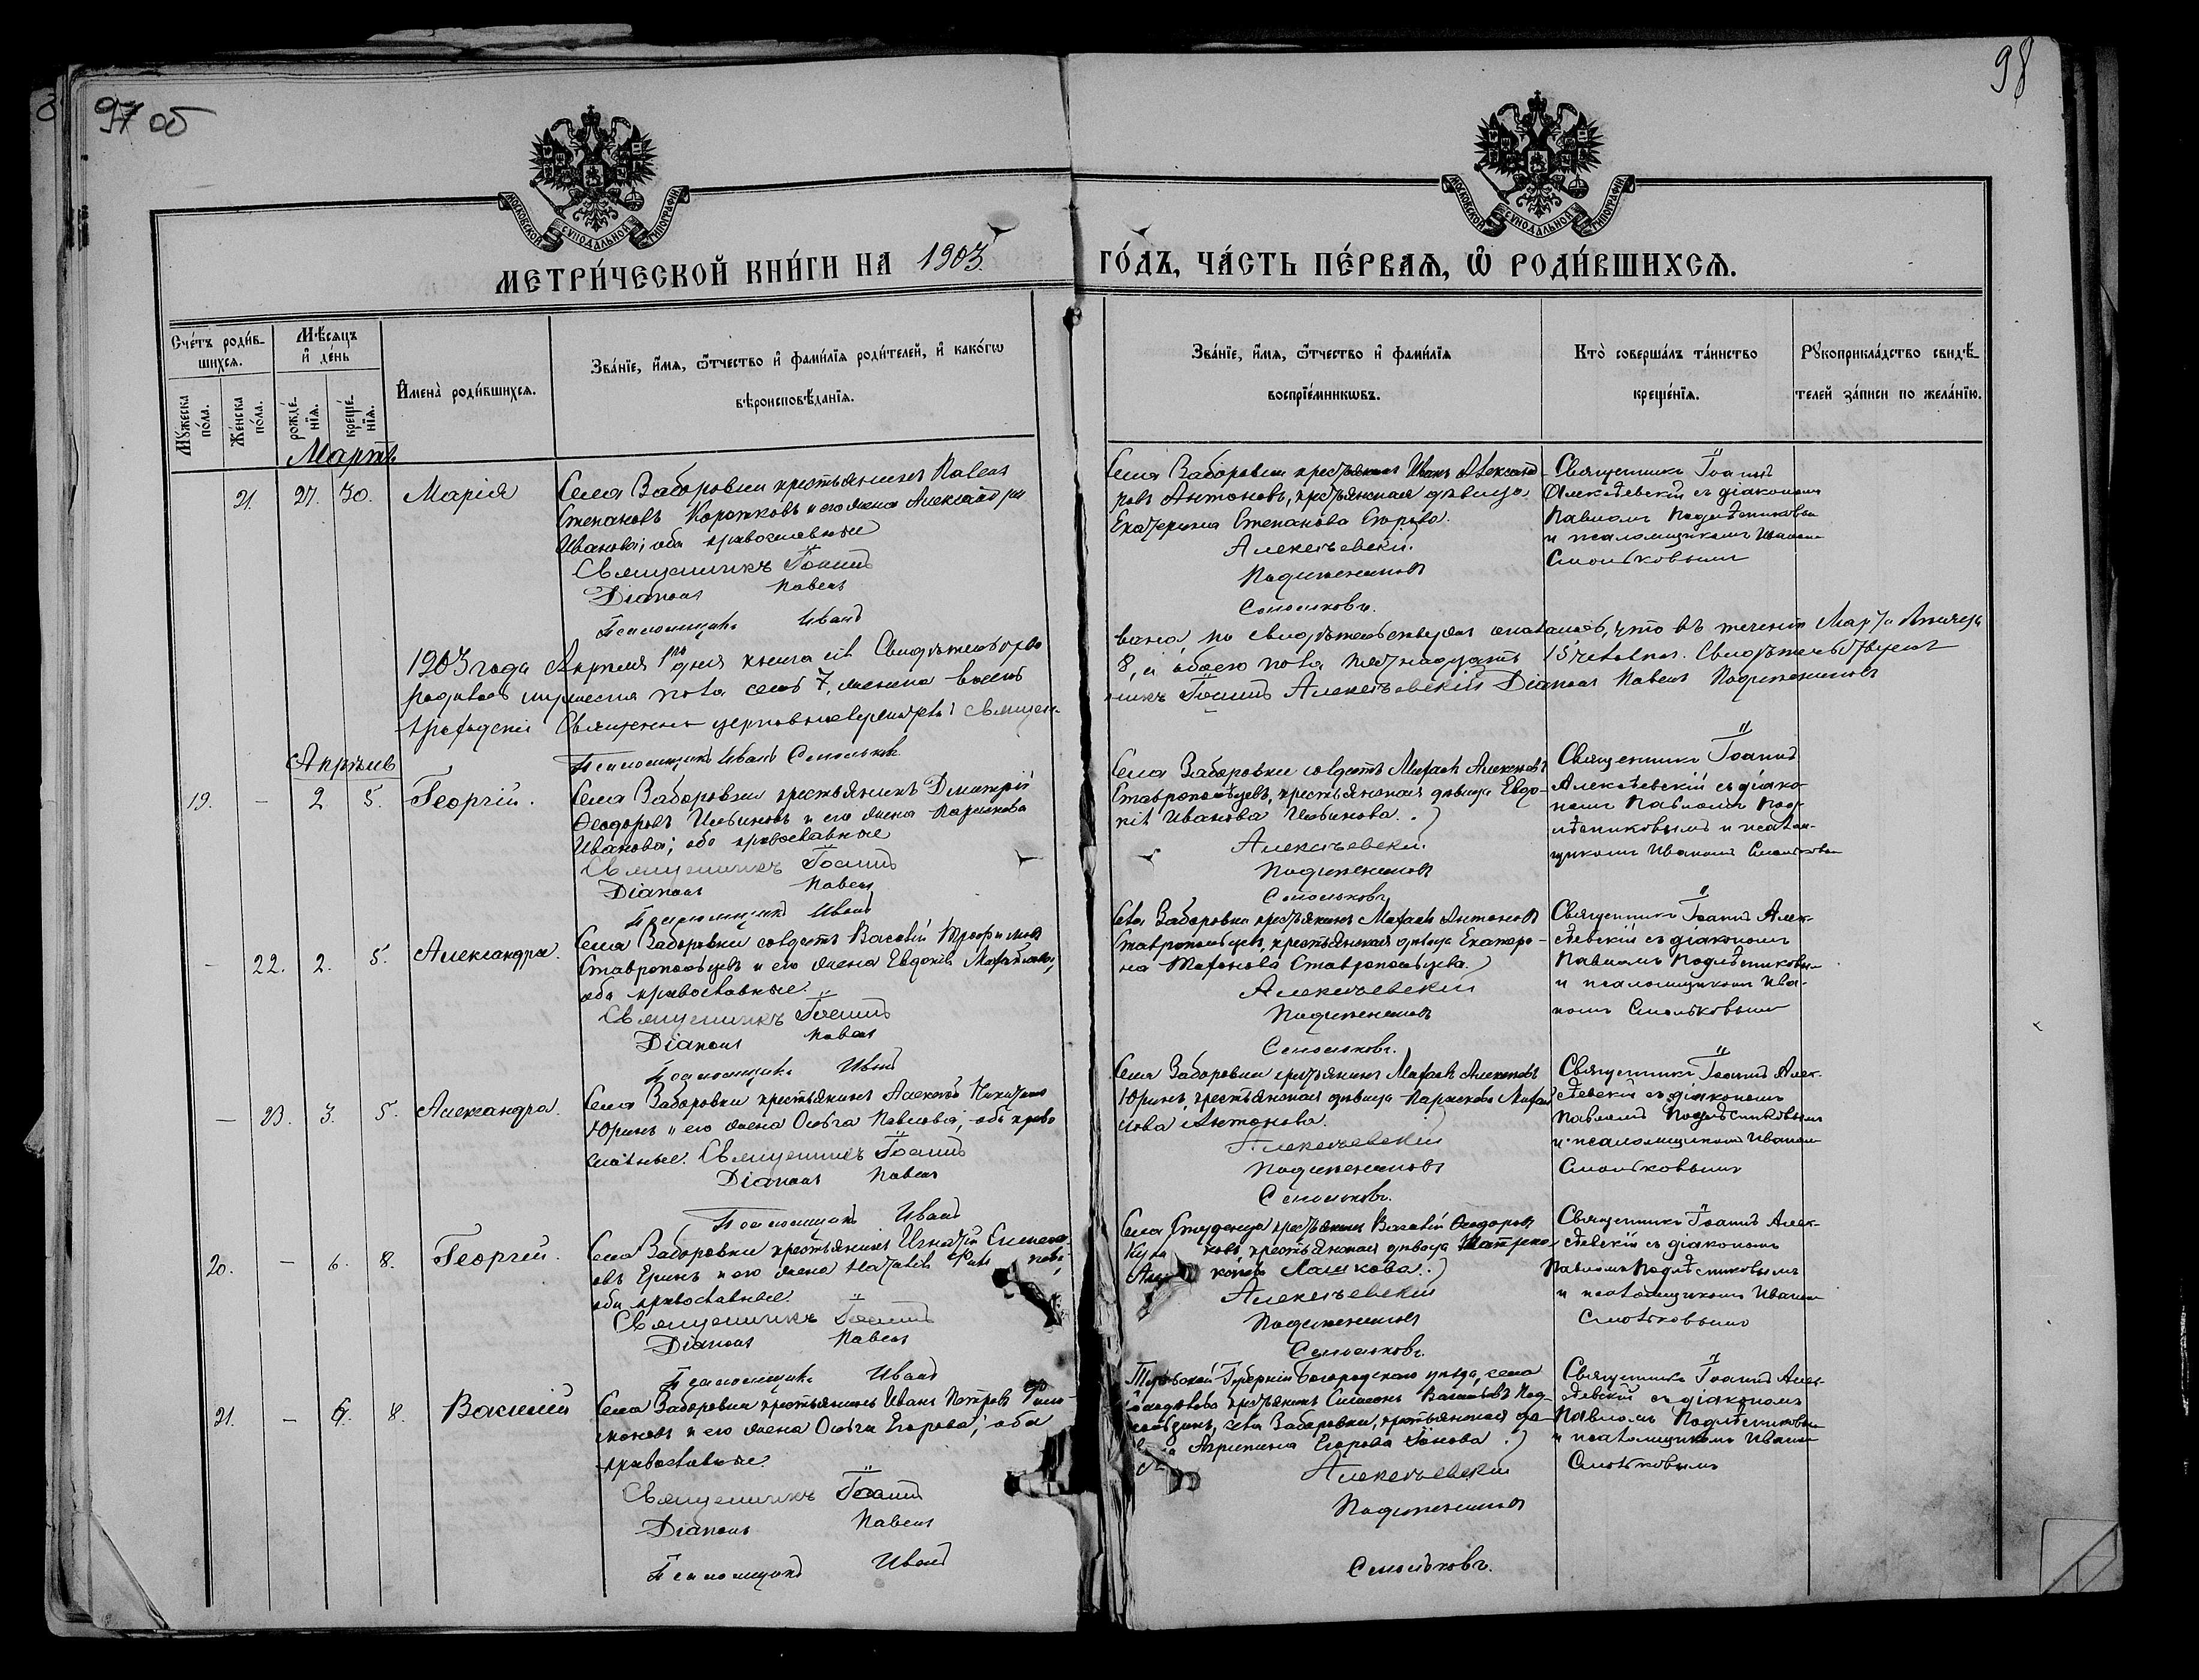 97 об
98
МОСКОВСКОЙ СУНОДАЛЬНОЙ ТИПОГРАФІИ
МОСКОВСКОЙ СУНОДАЛЬНОЙ ТИПОГРАФІИ
МЕТРИ́ЧЕСКОЙ КНИ́ГИ НА 1903 ГО́ДЪ, ЧА́СТЬ ПЕ́РВАЯ, Ѡ РОДИ́ВШИХСЯ.
Сче́тъ роди́в-
шихся.
Мѣ́сяцъ
и҆ де́нь
Мꙋ́жеска
по́ла.
Же́нска
по́ла.
рожде́-
нїя.
креще́-
нїя.
И҆мена̀ роди́вшихся.
Зва́нїе, и҆́мя, ѻ҆́тчество и҆ фами́лїя роди́телей, и҆ како́гѡ
вѣроисповѣ́данїя.
Зва́нїе, и҆́мя, ѻ҆́тчество и҆ фами́лїя
воспрїе́мникѡвъ.
Кто̀ соверша́лъ та́инство
креще́нїя.
Рꙋкоприкла́дство свидѣ́-
телей за́писи по жела́нїю.
Мартъ
21. 27. 30. Марія
Села Заборовки крестьянинъ Павелъ
Степановъ Коротковъ и его жена Александра
Иванова; оба православные
Священникъ Іоаннъ
Діаконъ Павелъ
Псаломщикъ Иванъ
Села Заборовки крестьянинъ Иванъ Александ-
ровъ Антоновъ, крестьянская дѣвица
Екатерина Степанова Егорова.
Алексѣевскій
Подлѣсниковъ
Смольковъ.
Священникъ Іоаннъ
Алексѣевскій съ діакономъ
Павломъ Подлѣсниковымъ
и псаломщикомъ Иваномъ
Смольковымъ
1903 года Апрѣля 1го дня книга сія Свидѣтельство
вана, по свидѣтельству оказалось, что въ теченіи Марта мѣсяца
родилось мужеска пола семь 7, женска восемь
8, а обоего пола пятнадцать 15 человѣкъ. Свидѣтельствуютъ
Священно церковнослужители: Священ-
никъ Іоаннъ Алексѣевскій Діаконъ Павелъ Подлѣсниковъ
Псаломщикъ Иванъ Смольковъ.
Апрѣль
19. — 2 5. Георгій.
Села Заборовки крестьянинъ Димитрій
Ѳеодоровъ и его жена Параскева
Иванова; оба православные
Священникъ Іоаннъ
Діаконъ Павелъ
Псаломщикъ Иванъ
Села Заборовки солдатъ Алексѣевъ
Ставропольцевъ, крестьянская дѣвица Евдо-
кія Иванова
Алексѣевскій
Подлѣсниковъ
Смольковъ
Священникъ Іоаннъ
Алексѣевскій съ діако-
номъ Павломъ Под-
лѣсниковымъ и псалом-
щикомъ Иваномъ Смольковымъ
— 22. 2. 5. Александра.
Села Заборовки солдатъ Василій Трофимовъ
Ставропольцевъ и его жена Евдокія
оба православные.
Священникъ Іоаннъ
Діаконъ Павелъ
Псаломщикъ Иванъ
Села Заборовки крестьянинъ Антоновъ
Ставропольцевъ, крестьянская дѣвица Екатери-
на Ставропольцева.
Алексѣевскій
Подлѣсниковъ
Смольковъ.
Священникъ Іоаннъ Алек-
сѣевскій съ діакономъ
Павломъ Подлѣсниковымъ
и псаломщикомъ Ива-
номъ Смольковымъ
— 23. 3. 5. Александра.
Села Заборовки крестьянинъ Алексѣй Никитинъ
Юринъ и его жена Ольга Павлова; оба право
славные. Священникъ Іоаннъ
Діаконъ Павелъ
Псаломщикъ Иванъ
Села Заборовки крестьянинъ Алексѣевъ
Юринъ, крестьянская дѣвица Параскева
Антонова.
Алексѣевскій
Подлѣсниковъ
Смольковъ.
Священникъ Іоаннъ Алек-
сѣевскій съ діакономъ
Павломъ Подлѣсниковымъ
и псаломщикомъ Иваномъ
Смольковымъ
20. — 6. 8. Георгій.
Села Заборовки крестьянинъ Игнатій
Еринъ и его жена Наталія
оба православные.
Священникъ Іоаннъ
Діаконъ Павелъ
Псаломщикъ Иванъ
Села Студенца крестьянинъ Василій Ѳеодоровъ
крестьянская дѣвица
Лашкова.
Алексѣевскій
Подлѣсниковъ
Смольковъ.
Священникъ Іоаннъ Алек-
сѣевскій съ діакономъ
Павломъ Подлѣсниковымъ
и псаломщикомъ Иваномъ
Смольковымъ
21. — 6. 8. Василій
Села Заборовки крестьянинъ Иванъ Петровъ
и его жена Ольга Егорова; оба
православные.
Священникъ Іоаннъ
Діаконъ Павелъ
Псаломщикъ Иванъ
Тульской Губерніи Богородскаго уѣзда, села
крестьянинъ Симеонъ
села Заборовки, крестьянская дѣ-
Агрипина Егорова
Алексѣевскій
Подлѣсниковъ
Смольковъ.
Священникъ Іоаннъ Алек-
сѣевскій съ діакономъ
Павломъ Подлѣсниковымъ
и псаломщикомъ Иваномъ
Смольковымъ